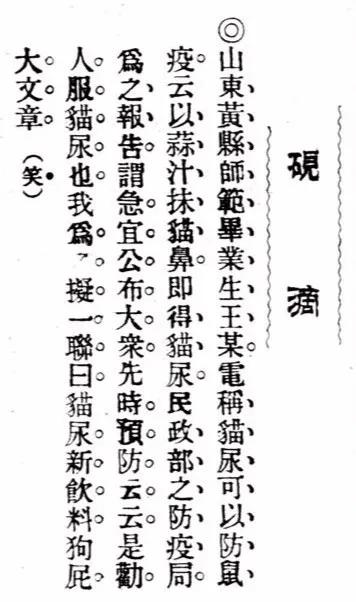 硯滴
◎山東黃縣師範畢業生王某電稱貓尿可以防鼠
疫云以蒜汁抹貓鼻即得貓尿民政部之防疫局
爲之報告謂急宜公布大衆先時預防云云是勸
人服貓尿也我爲擬一聯曰貓尿新飲料狗屁
大文章（笑）